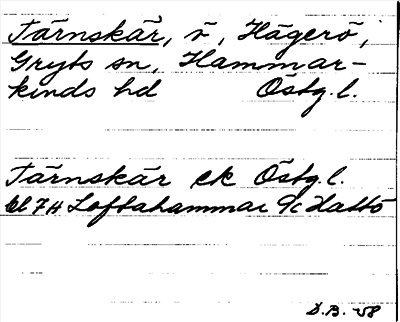 Tärnskär, ö, Hägerö,
Gryts sn, Hammar-
kinds hd Östg. l.
Tärnskär ek Östg. l.
bl 7H Loftahammar 9c Hattö
D.B. -58